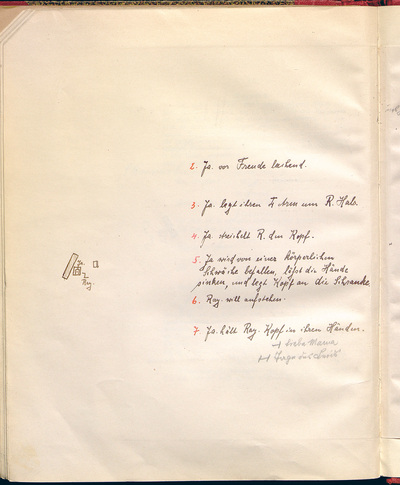 2. Ja. vor Freude lachend.
3. Ja. legt ihren I. Arm um R. Hals.
4. Ja. streichelt R. den Kopf.
5. Ja wird von einer körperlichen
Schwäche befallen, läßt die Hände
sinken, und legt Kopf an die Schranke
6. Ray. will aufstehen.
Ja.
Ray.
7. Ja. hält Ray. Kopf in ihren Händen.